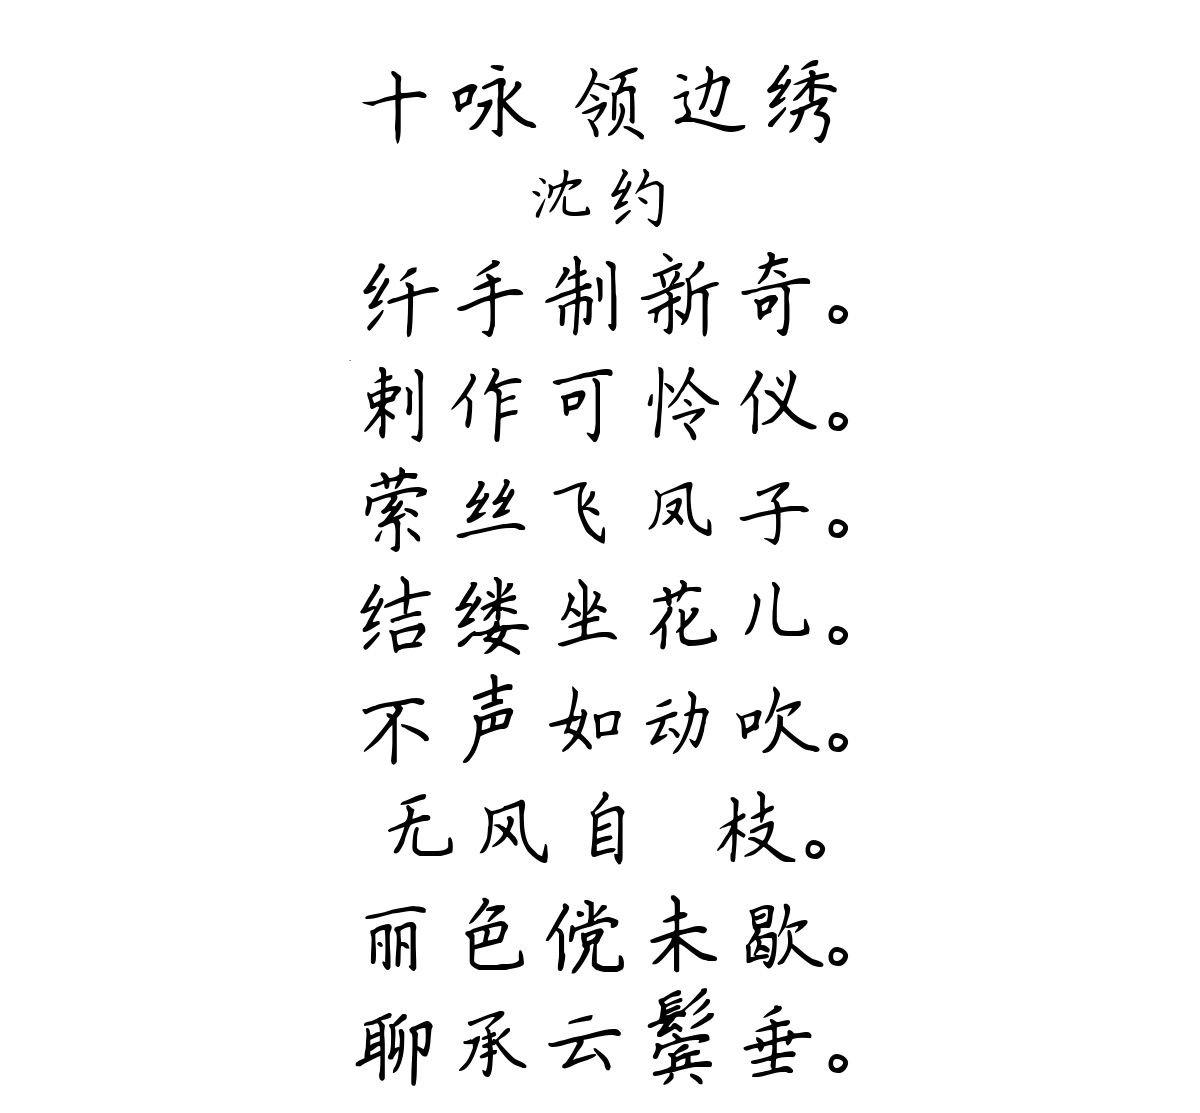 十咏 领边绣
沈约
纤手制新奇。
刺作可怜仪。
萦丝飞凤子。
结缕坐花儿。
不声如动吹。
无风自 枝。
丽色傥未歇。
聊承云鬓垂。